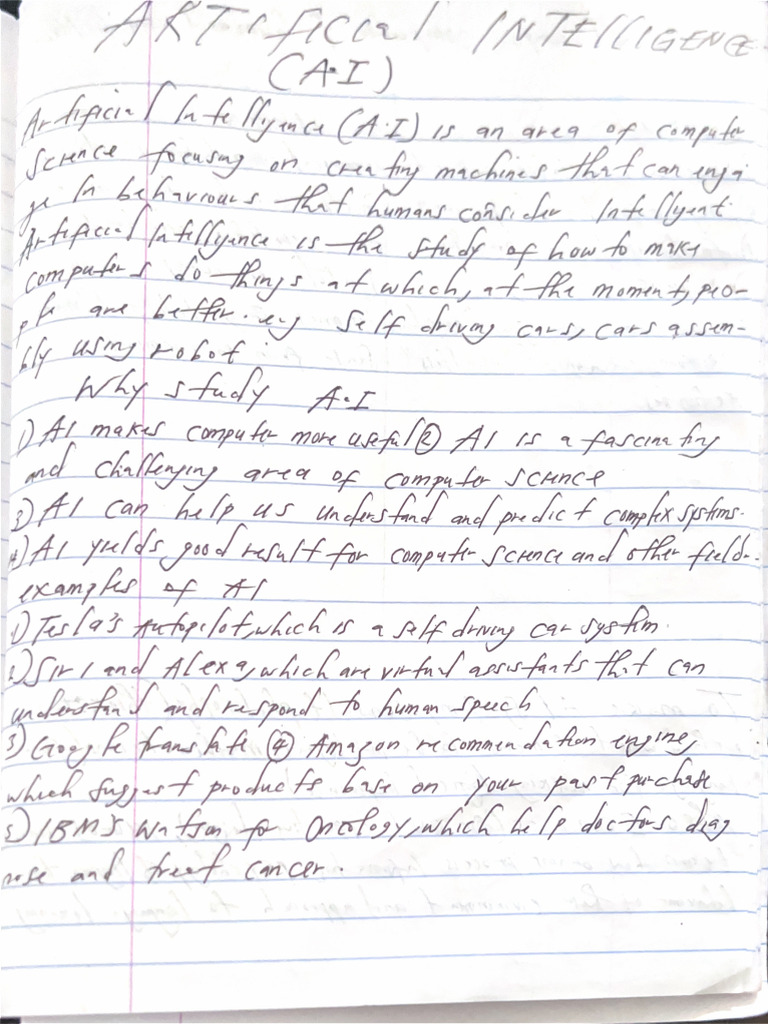 ARTificial INTELLIGENCE
(A.I)
Artificial Intelligence (A.I) is an area of computer
science focusing on creating machines that can enga
ge In behaviours that humans consider Intelligent.
Artificial Intelligence is the study of how to make
computers do things at which, at the moment, peo-
ple are better. eg Self driving cars, cars assem-
bly using robot
Why study A.I
1) AI makes computer more useful ② AI is a fascinating
and challenging area of computer science
3) AI can help us understand and predict complex systems.
4) AI yields good result for computer science and other field.
examples of AI
1) Tesla's Autopilot, which is a self driving car system.
2) Siri and Alexa, which are virtual assistants that can
understand and respond to human speech
3) Google translate ④ Amazon recommendation engine,
which suggest products base on your past purchase
5) IBM's Watson for Oncology, which help doctors diag
nose and treat cancer.